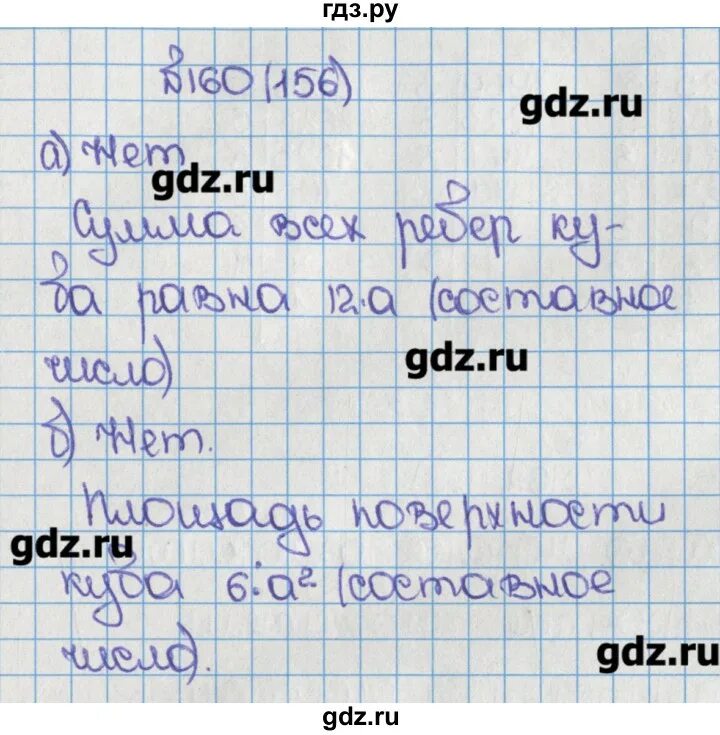 гдз.ру
№160(156)
gdz.ru
а) Нет
gdz.ru
Сумма всех ребер ку-
ба равна 12·а (составное
gdz.ru
число)
б) Нет.
Площадь поверхности
gdz.ru
куба 6·а² (составное
число).
gdz.ru
gdz.ru